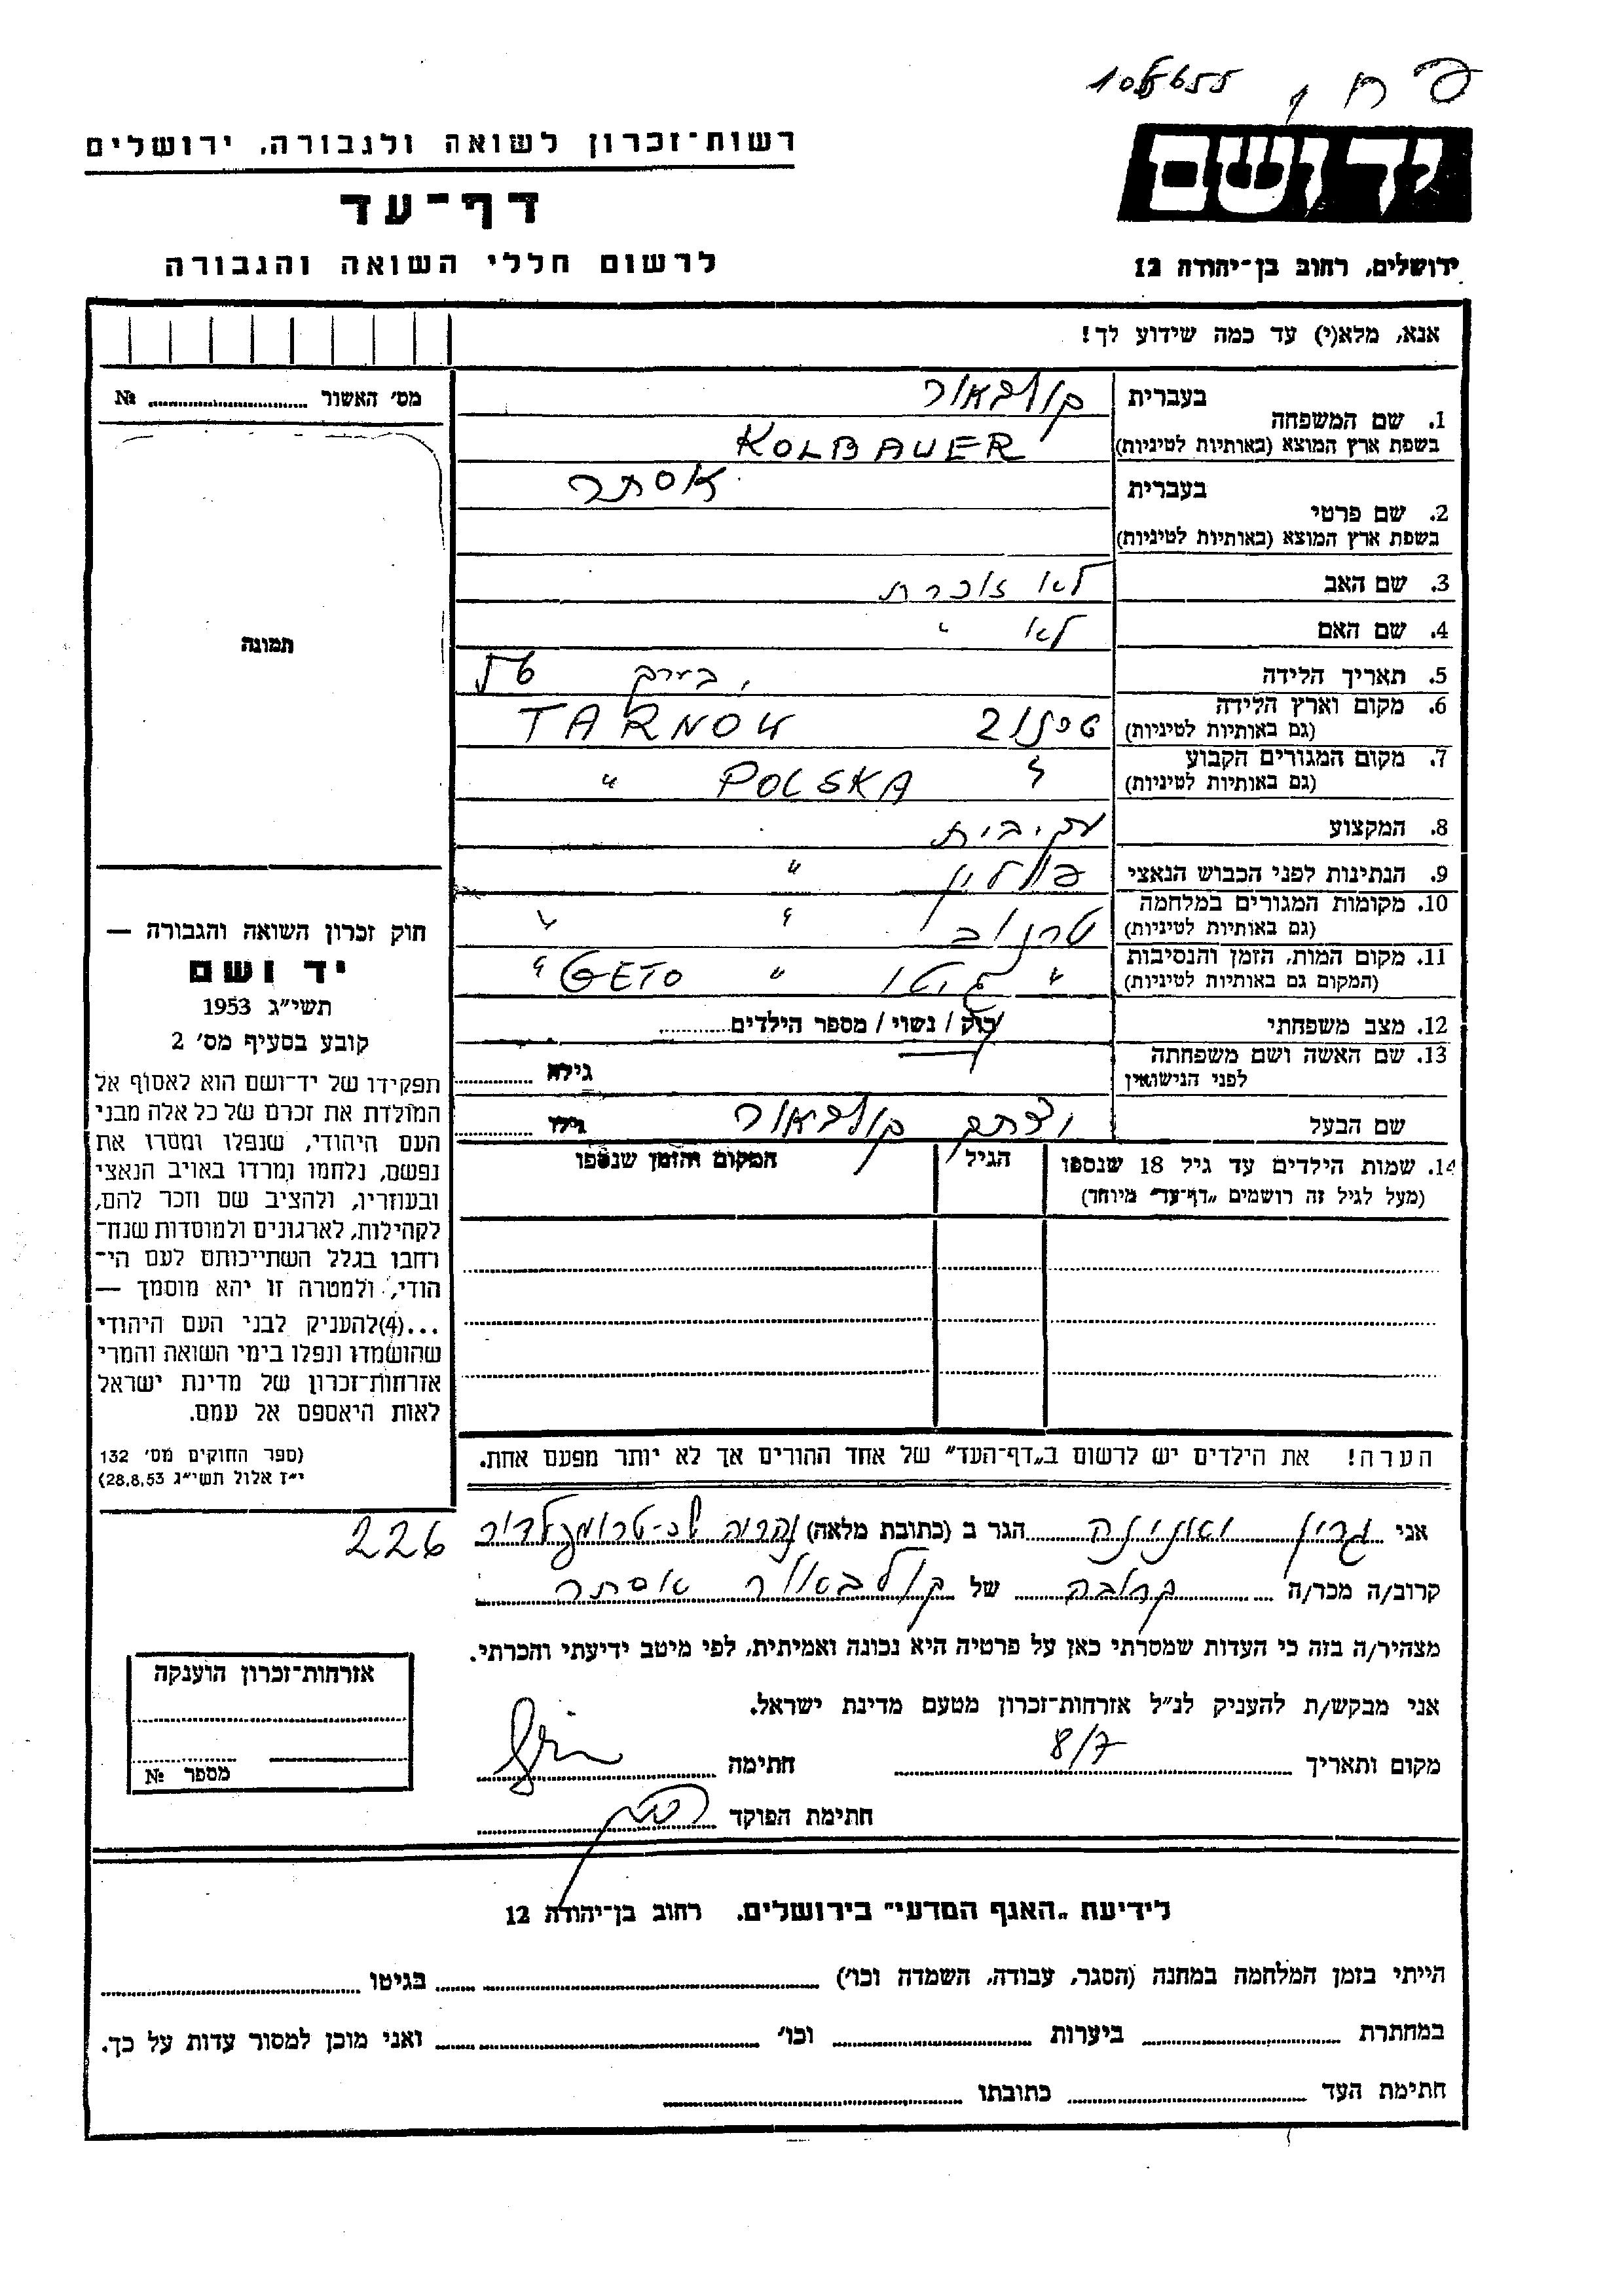 רשות־זכרון לשואה ולגבורה, ירושלים
דף־עד
לרשום חללי השואה והגבורה
יד ושם
ירושלים, רחוב בן־יהודה 12
אנא, מלא(י) עד כמה שידוע לך!
מס׳ האשור № 
1. שם המשפחה
בעברית קולבאור
בשפת ארץ המוצא (באותיות לטיניות) KOLBAUER
2. שם פרטי
בעברית אסתר
בשפת ארץ המוצא (באותיות לטיניות)
3. שם האב לא זוכרת
4. שם האם לא "
5. תאריך הלידה בערך
6. מקום וארץ הלידה (גם באותיות לטיניות) טרנוב TARNOW
7. מקום המגורים הקבוע (גם באותיות לטיניות) " POLSKA "
8. המקצוע עקיבית
9. הנתינות לפני הכבוש הנאצי פולין "
10. מקומות המגורים במלחמה (גם באותיות לטיניות) טרנוב " "
11. מקום המות, הזמן והנסיבות (המקום גם באותיות לטיניות) " גיטו " GETO "
12. מצב משפחתי רוק / נשוי / מספר הילדים
13. שם האשה ושם משפחתה לפני הנישואין גילה
שם הבעל קולבאור גילו
14. שמות הילדים עד גיל 18 שנספו (מעל לגיל זה רושמים „דף־עד״ מיוחד) הגיל המקום והזמן שנספו
תמונה
חוק זכרון השואה והגבורה —
יד ושם
תשי״ג 1953
קובע בסעיף מס׳ 2
תפקידו של יד־ושם הוא לאסוף אל
המולדת את זכרם של כל אלה מבני
העם היהודי, שנפלו ומסרו את
נפשם, נלחמו ומרדו באויב הנאצי
ובעוזריו, ולהציב שם וזכר להם,
לקהילות, לארגונים ולמוסדות שנח־
רחבו בגלל השתייכותם לעם הי־
הודי, ולמטרה זו יהא מוסמך —
...(4)להעניק לבני העם היהודי
שהושמדו ונפלו בימי השואה והמרי
אזרחות־זכרון של מדינת ישראל
לאות היאספם אל עמם.
(ספר החוקים מס׳ 132
י״ז אלול תשי״ג 28.8.53)
הערה! את הילדים יש לרשום ב„דף־העד״ של אחד ההורים אך לא יותר מפעם אחת.
אני גרין הגר ב (כתובת מלאה) 226
קרוב/ה מכר/ה קרובה של קולבאור אסתר
מצהיר/ה בזה כי העדות שמסרתי כאן על פרטיה היא נכונה ואמיתית, לפי מיטב ידיעתי והכרתי.
אני מבקש/ת להעניק לנ״ל אזרחות־זכרון מטעם מדינת ישראל.
מקום ותאריך 8/7 חתימה
חתימת הפוקד
אזרחות־זכרון הוענקה
מספר №
לידיעת „האגף המדעי״ בירושלים. רחוב בן־יהודה 12
הייתי בזמן המלחמה במחנה (הסגר, עבודה, השמדה וכו׳) בגיטו
במחתרת ביערות וכו׳ ואני מוכן למסור עדות על כך.
חתימת העד כתובתו